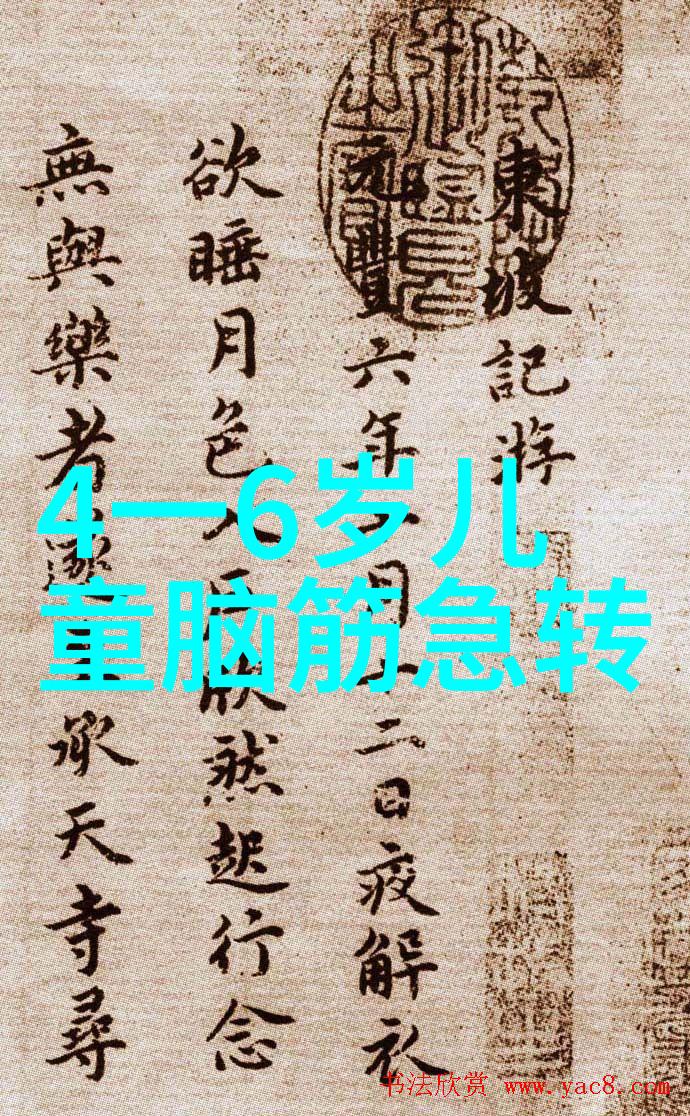 東坡記游
元豐六年十月十二日夜解衣
欲睡月色入户欣然起行念
無與樂者遂至承天寺尋
4一6岁儿
童脑筋急转
书法欣赏 www.yac8.com